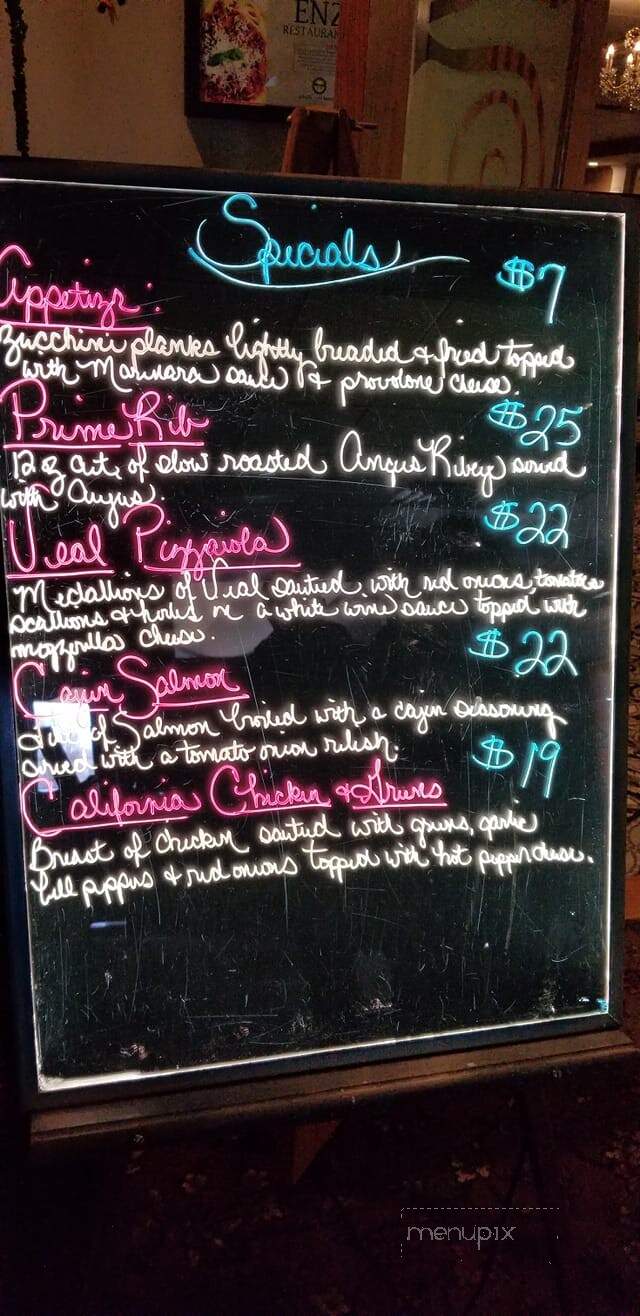 ENZ
RESTAURAN
Specials
$7
Appetizr:
Zucchini planks lightly breaded & fried topped
with Marinara sauce & provolone cheese.
Prime Rib
$25
12 oz cut, of slow roasted Angus Ribeye served
with Augus.
$22
Veal Pizzaiola
Medallions of Veal sautied with red onions, tomatoes
scallions & herbs in a white wine sauce topped with
mozzerella cheese.
$22
Cajun Salmon
of Salmon broiled with a cajun seasoning
served with a tomato onion relish.
$19
California Chicken & Greens
Breast of chicken sautied with greens, garlic
bell peppers & red onions topped with hot pepper cheese.
menupix